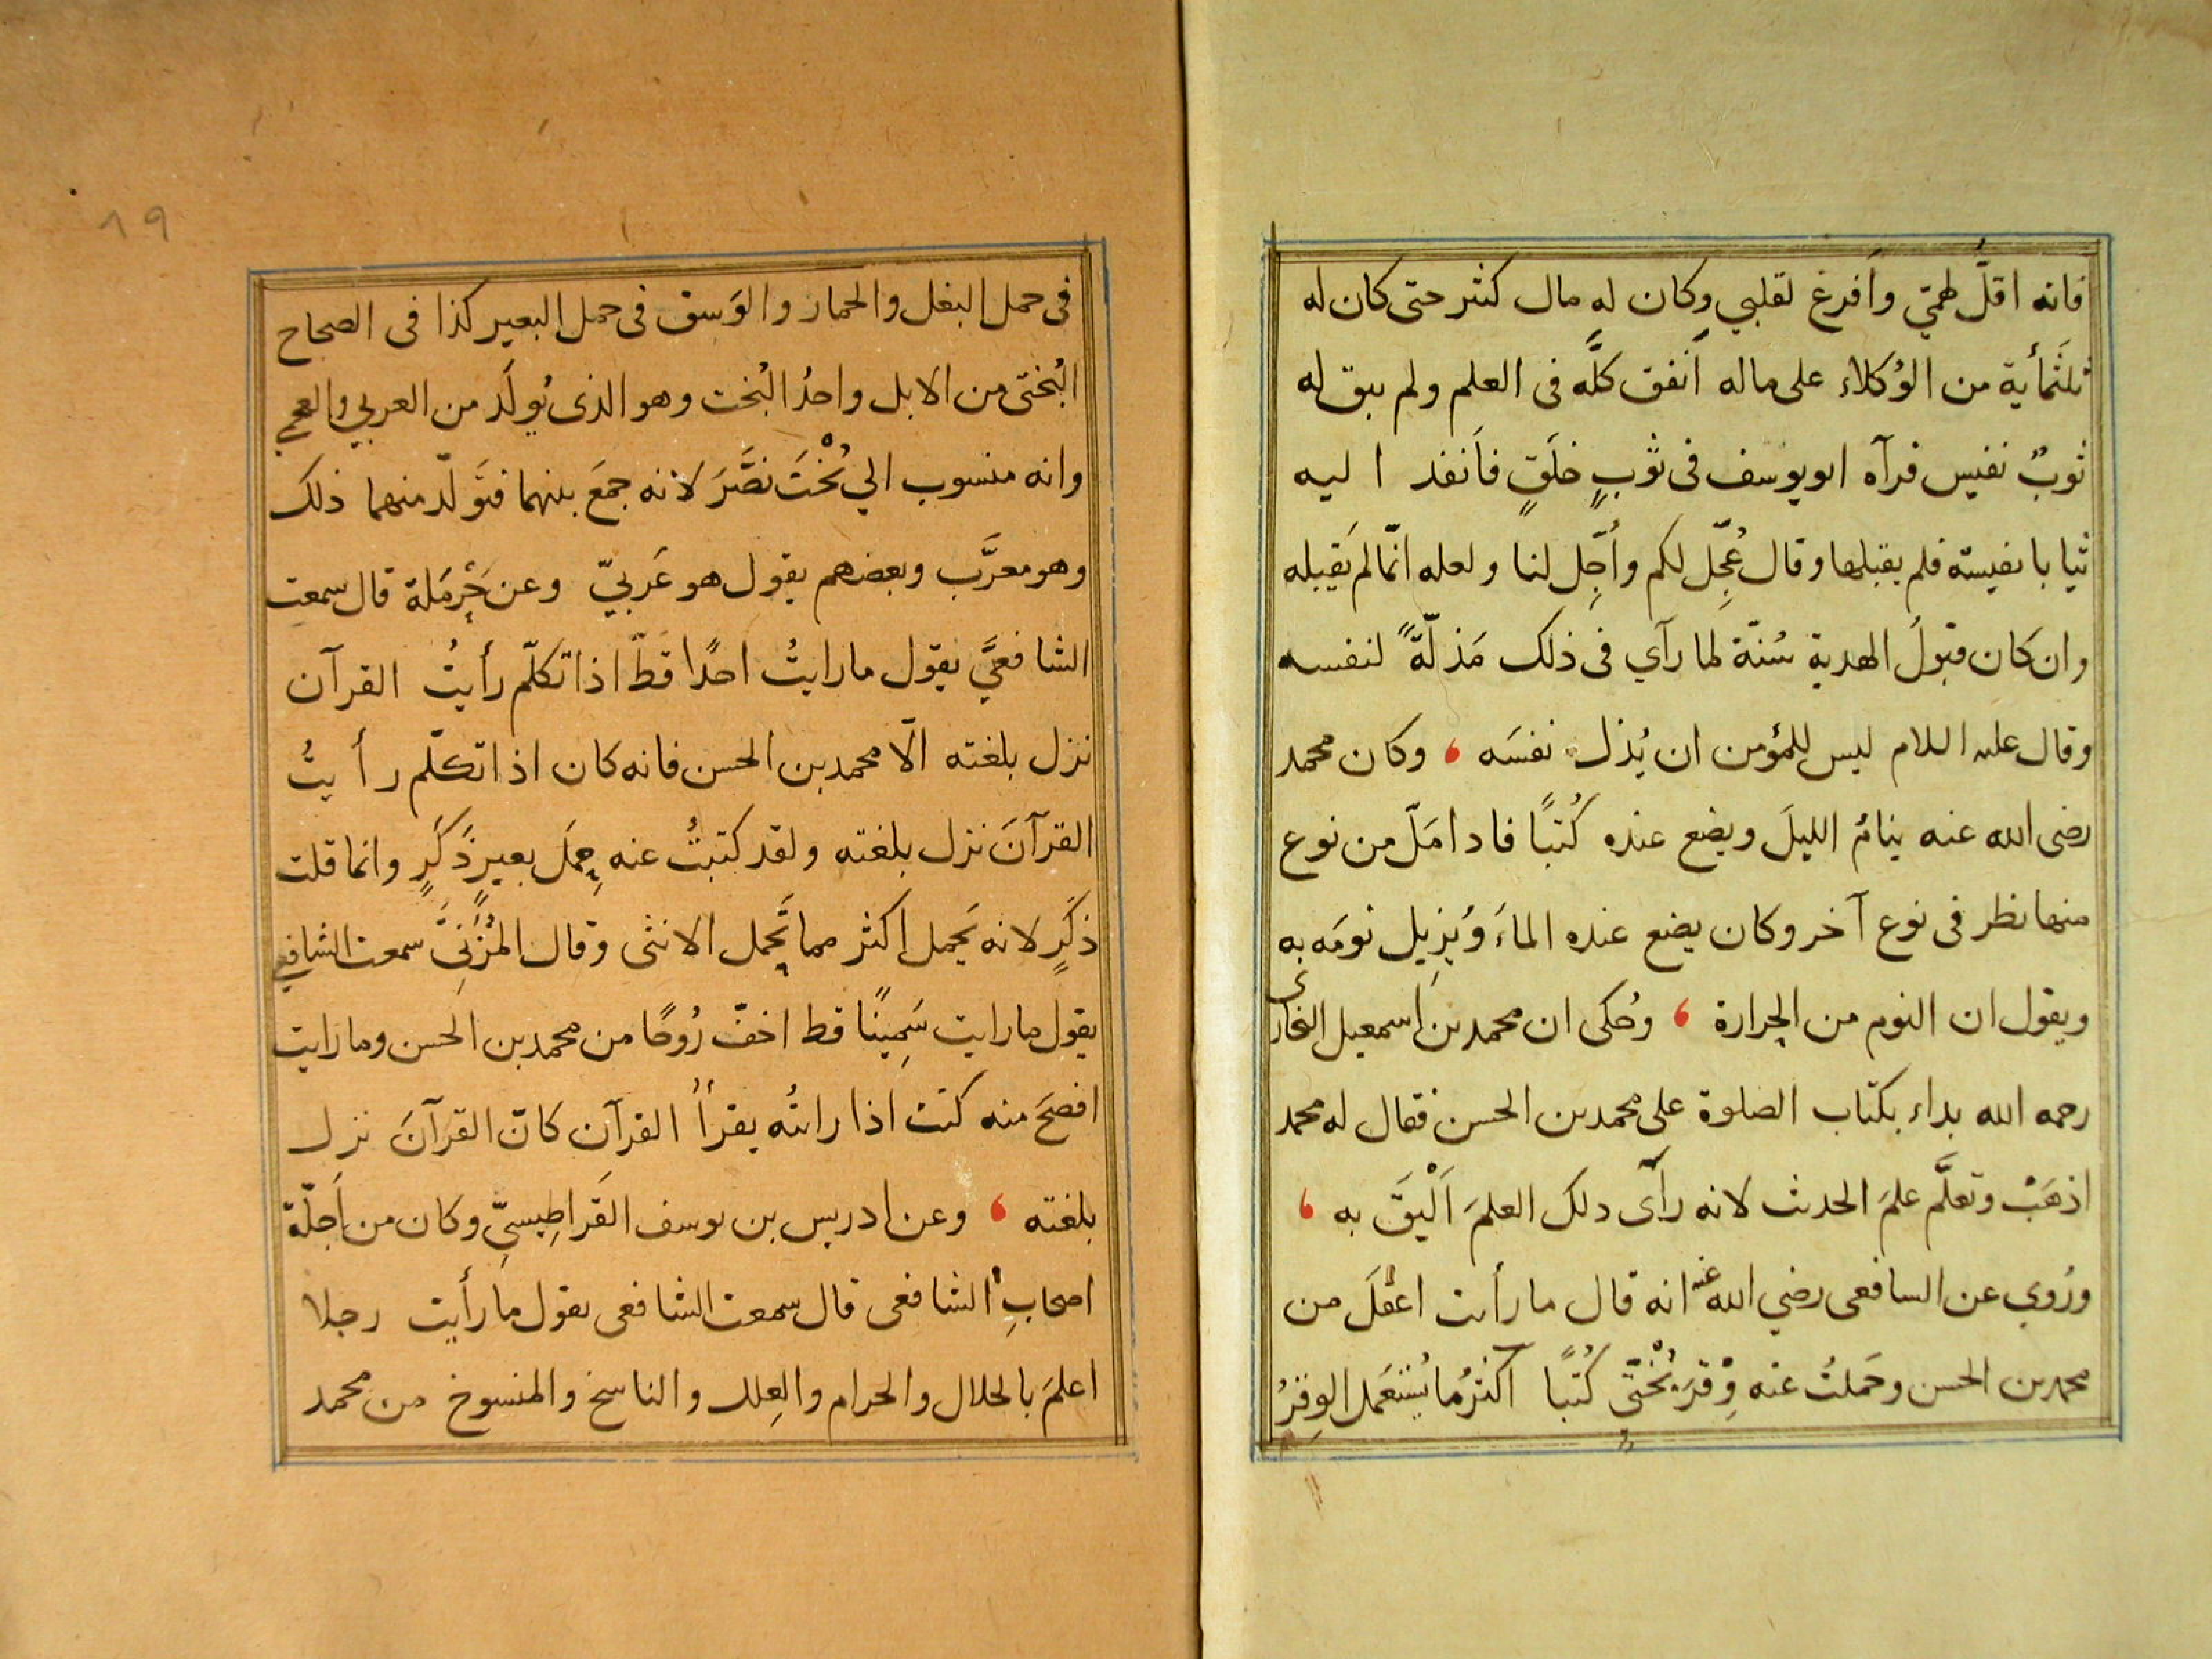 فانه اقلُّ لهمّي وأَفرغ لقلبي وكان له مال كثر حتى كان له
ثلثَمأية من الوُكلاء على ماله أَنفق كلَّه فى العلم ولم يبق له
ثوبٌ نفيس فرآه ابو يوسف فى ثوبٍ خلَقٍ فأَنفذ اليه
ثيابا نفيسة فلم يقبلها وقال عُجِّل لكم وأُجِّل لنا ولعله انّما لم يَقبله
وان كان قبولُ الهدية سُنّة لما رآي فى ذلك مَذلّةً لنفسه
وقال عليه اللام ليس للمؤمن ان يُذل نفسَه ، وكان محمد
رضى الله عنه ينامُ الليلَ ويضع عنده كُتبًا فاذا مَلّ من نوع
منها نظر فى نوع آخر وكان يضع عنده الماءَ ويُزِيل نومَه به
ويقول ان النوم من الحرارة ، وحُكى ان محمد بن اسمعيل البخارى
رحمه الله بداء بكتاب الصلوة على محمد بن الحسن فقال له محمد
اذهَبْ وتعلَّم علمَ الحديث لانه رآى ذلك العلمَ اَلْيَقَ به ،
ورُوي عن الشافعى رضي الله عنه انه قال ما رأيت اعْقلَ من
محمد بن الحسن وحَملتُ عنه وِقْرَ بُخْتيٍّ كُتبًا اكثرُ ما يُستعمَل الوِقرُ
فى حمل البغل والحمار والوَسق فى حمل البعير كذا فى الصحاح
البُختى من الابل واحدُ البُخت وهو الذى يُولَد من العربي والعجمي
وانه منسوب الي بُخْتَ نصَّرَ لانه جمعَ بينهما فتَولّد منهما ذلك
وهو معرَّب وبعضهم يقول هو عَربيّ وعن حَرْمَلة قال سمعت
الشافعيَّ يقول ما رايتُ احدًا قطّ اذا تكلّم رأيتُ القرآن
نزل بلغته الّا محمد بن الحسن فانه كان اذا تكلّم رأيتُ
القرآنَ نزل بلغته ولقد كتبتُ عنه حِملَ بعيرٍ ذَكَرٍ وانما قلت
ذَكَرٍ لانه يَحمل اكثر مما تَحمل الانثى وقال المُزَنىّ سمعت الشافعي
يقول ما رايت سَمِينًا قط اخفّ رُوحًا من محمد بن الحسن وما رايت
افصحَ منه كنت اذا رايته يقرأُ القرآن كانّ القرآنَ نزل
بلغته ، وعن ادريس بن يوسف القَراطِيسيِّ وكان من أَجلّة
اصحابِ الشافعى قال سمعت الشافعى يقول ما رأيت رجلا
اعلمَ بالحلال والحرام والعِلل والناسخ والمنسوخ من محمد